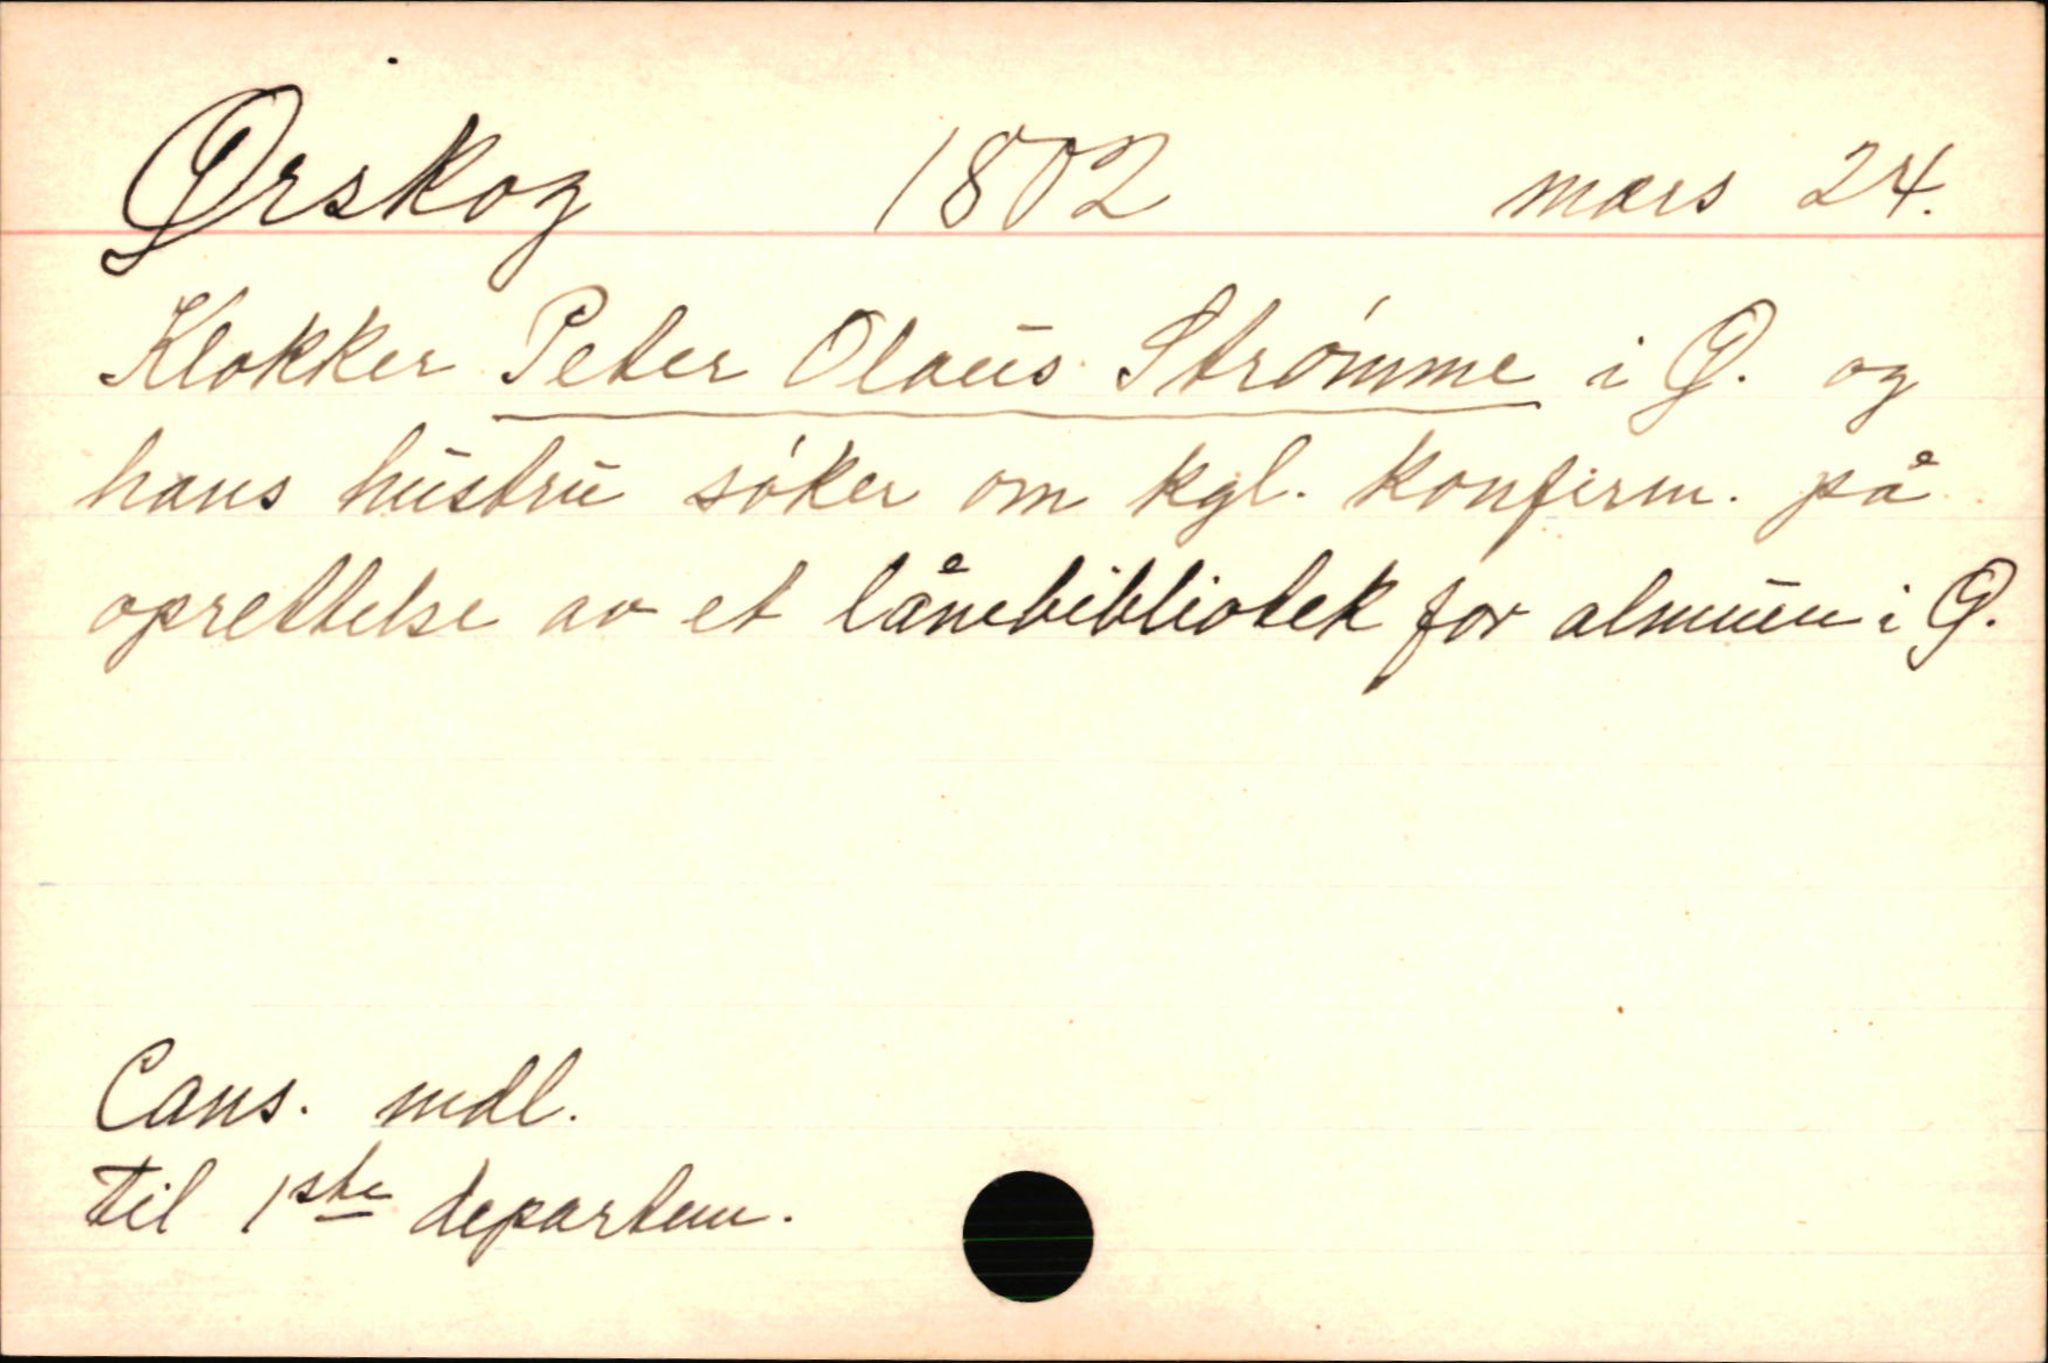 Ørskog 1802 mars 24.
Klokker Peter Olaus Strømme i Ø. og
hans hustru søker om kgl. konfirm. på
oprettelse av et lånebibliotek for almuen i Ø.
Cans. mdl.
til 1ste departem.